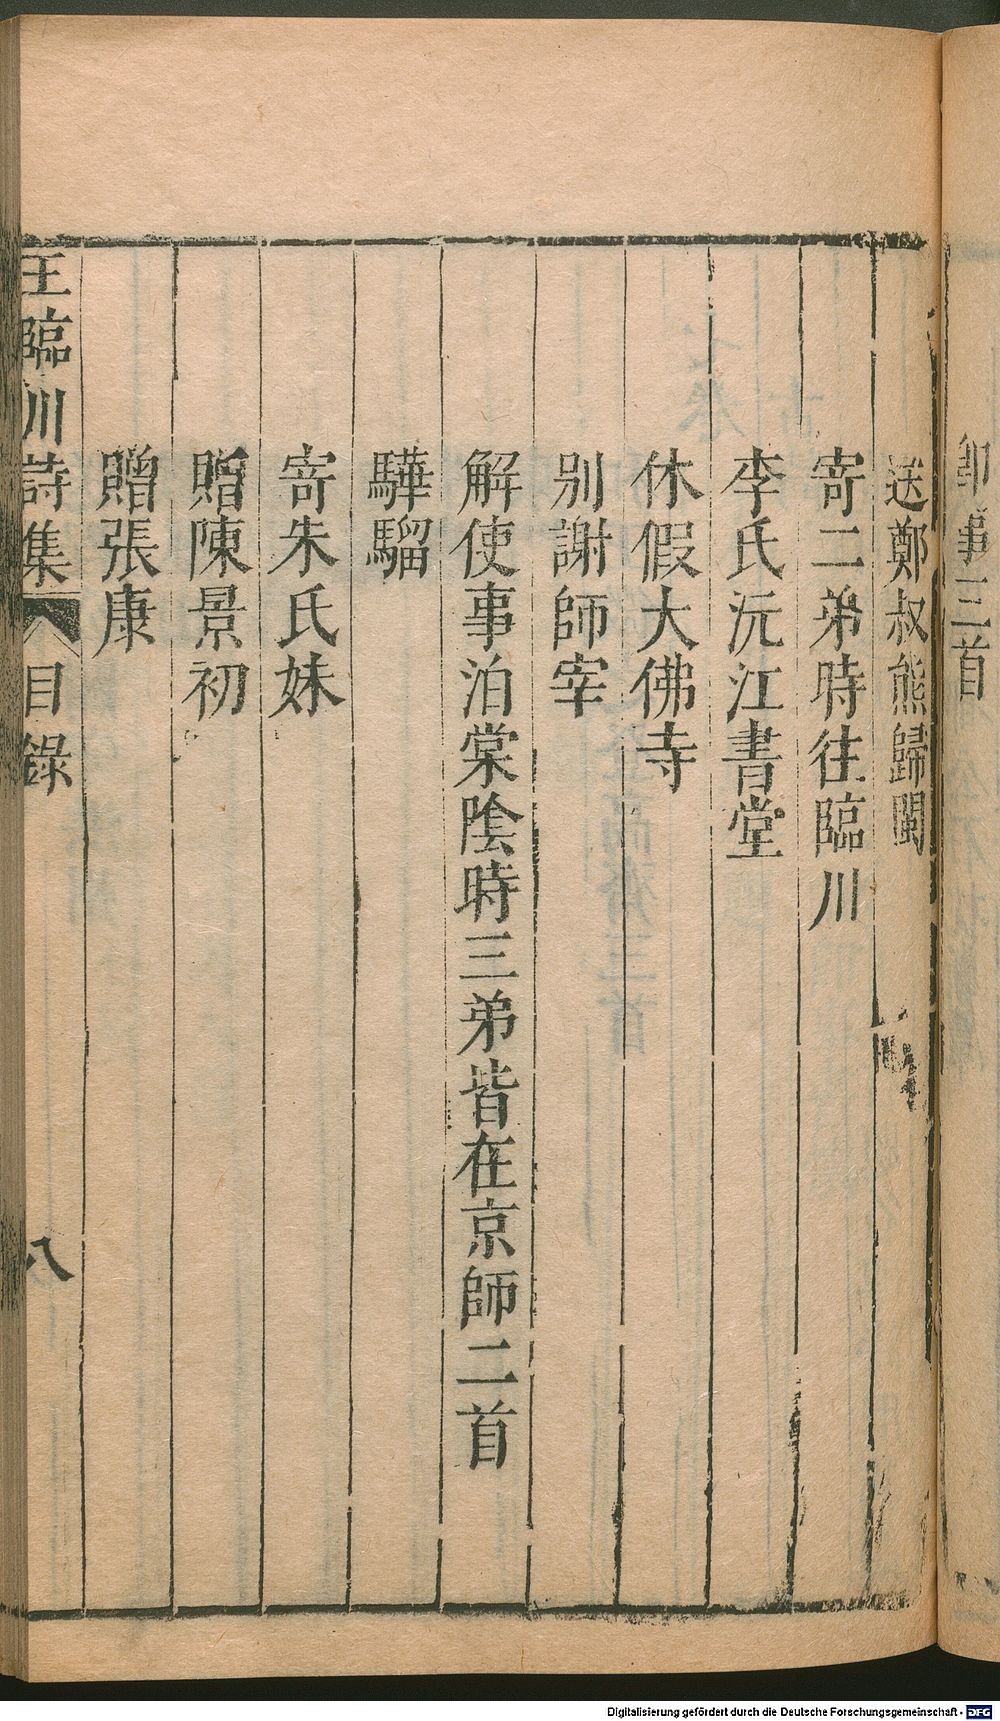 即事三首
送鄭叔熊歸閩
寄二弟時徃臨川
李氏沅江書堂
休假大佛寺
别謝師宰
解使事泊棠陰時三弟皆在京師二首
驊騮
寄朱氏妹
贈陳景初
贈張康
王臨川詩集 目錄 八
Digitalisierung gefördert durch die Deutsche Forschungsgemeinschaft - DFG